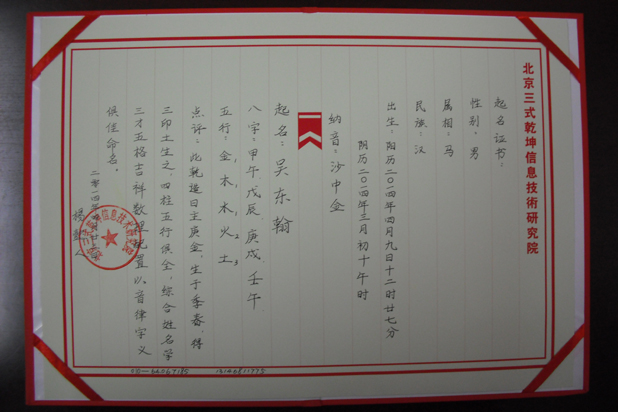 北京三式乾坤信息技術研究院
起名证书：
性别：男
属相：马
民族：汉
出生：阳历二〇一四年四月九日十二时廿七分
阴历二〇一四年三月初十午时
纳音：沙中金
起名：吴东翰
八字：甲午 戊辰 庚戌 壬午
五行：金1 木1 木1 火2 土3
点评：此乾造日主庚金，生于季春，得
三印土生之，四柱五行俱全，综合姓名学
三才五格吉祥数理配置以、音律字义
俱佳命名。